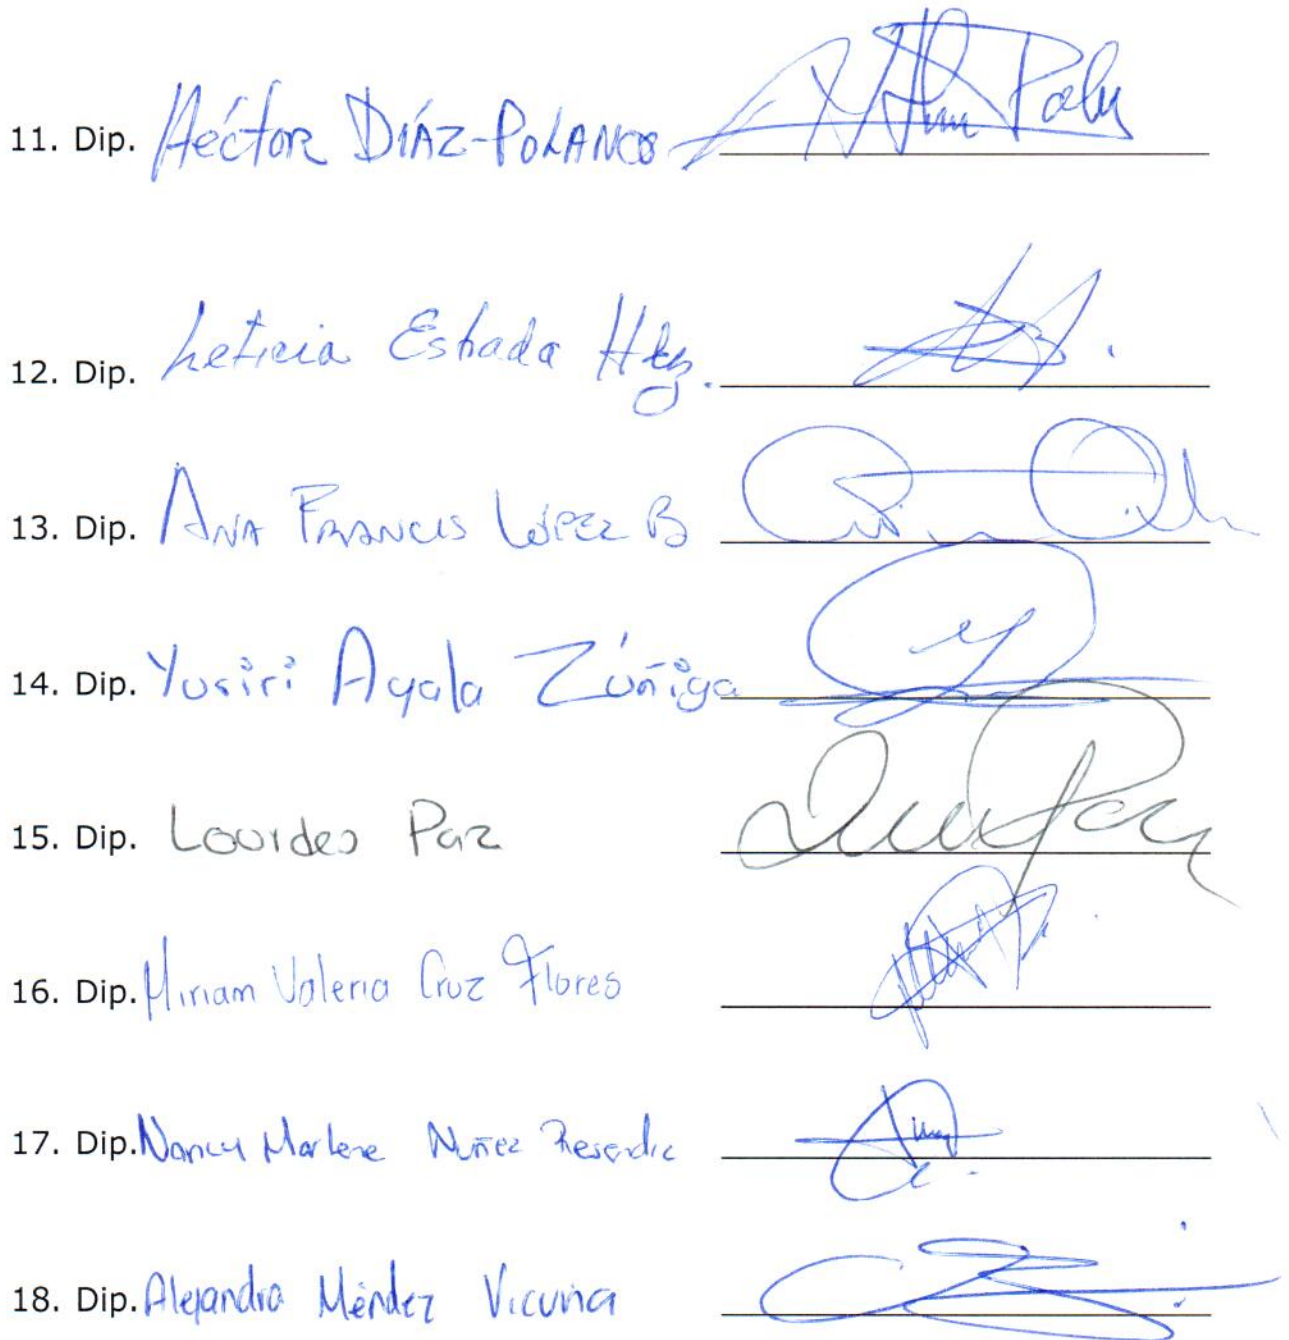 11. Dip. Héctor DÍAZ-POLANCO
12. Dip. Leticia Estrada Hdz.
13. Dip. ANA FRANCIS LÓPEZ B
14. Dip. Yusiri Ayala Zúñiga
15. Dip. Lourdes Paz
16. Dip. Miriam Valeria Cruz Flores
17. Dip. Nancy Marlene Núñez Resendiz
18. Dip. Alejandra Méndez Vicuña